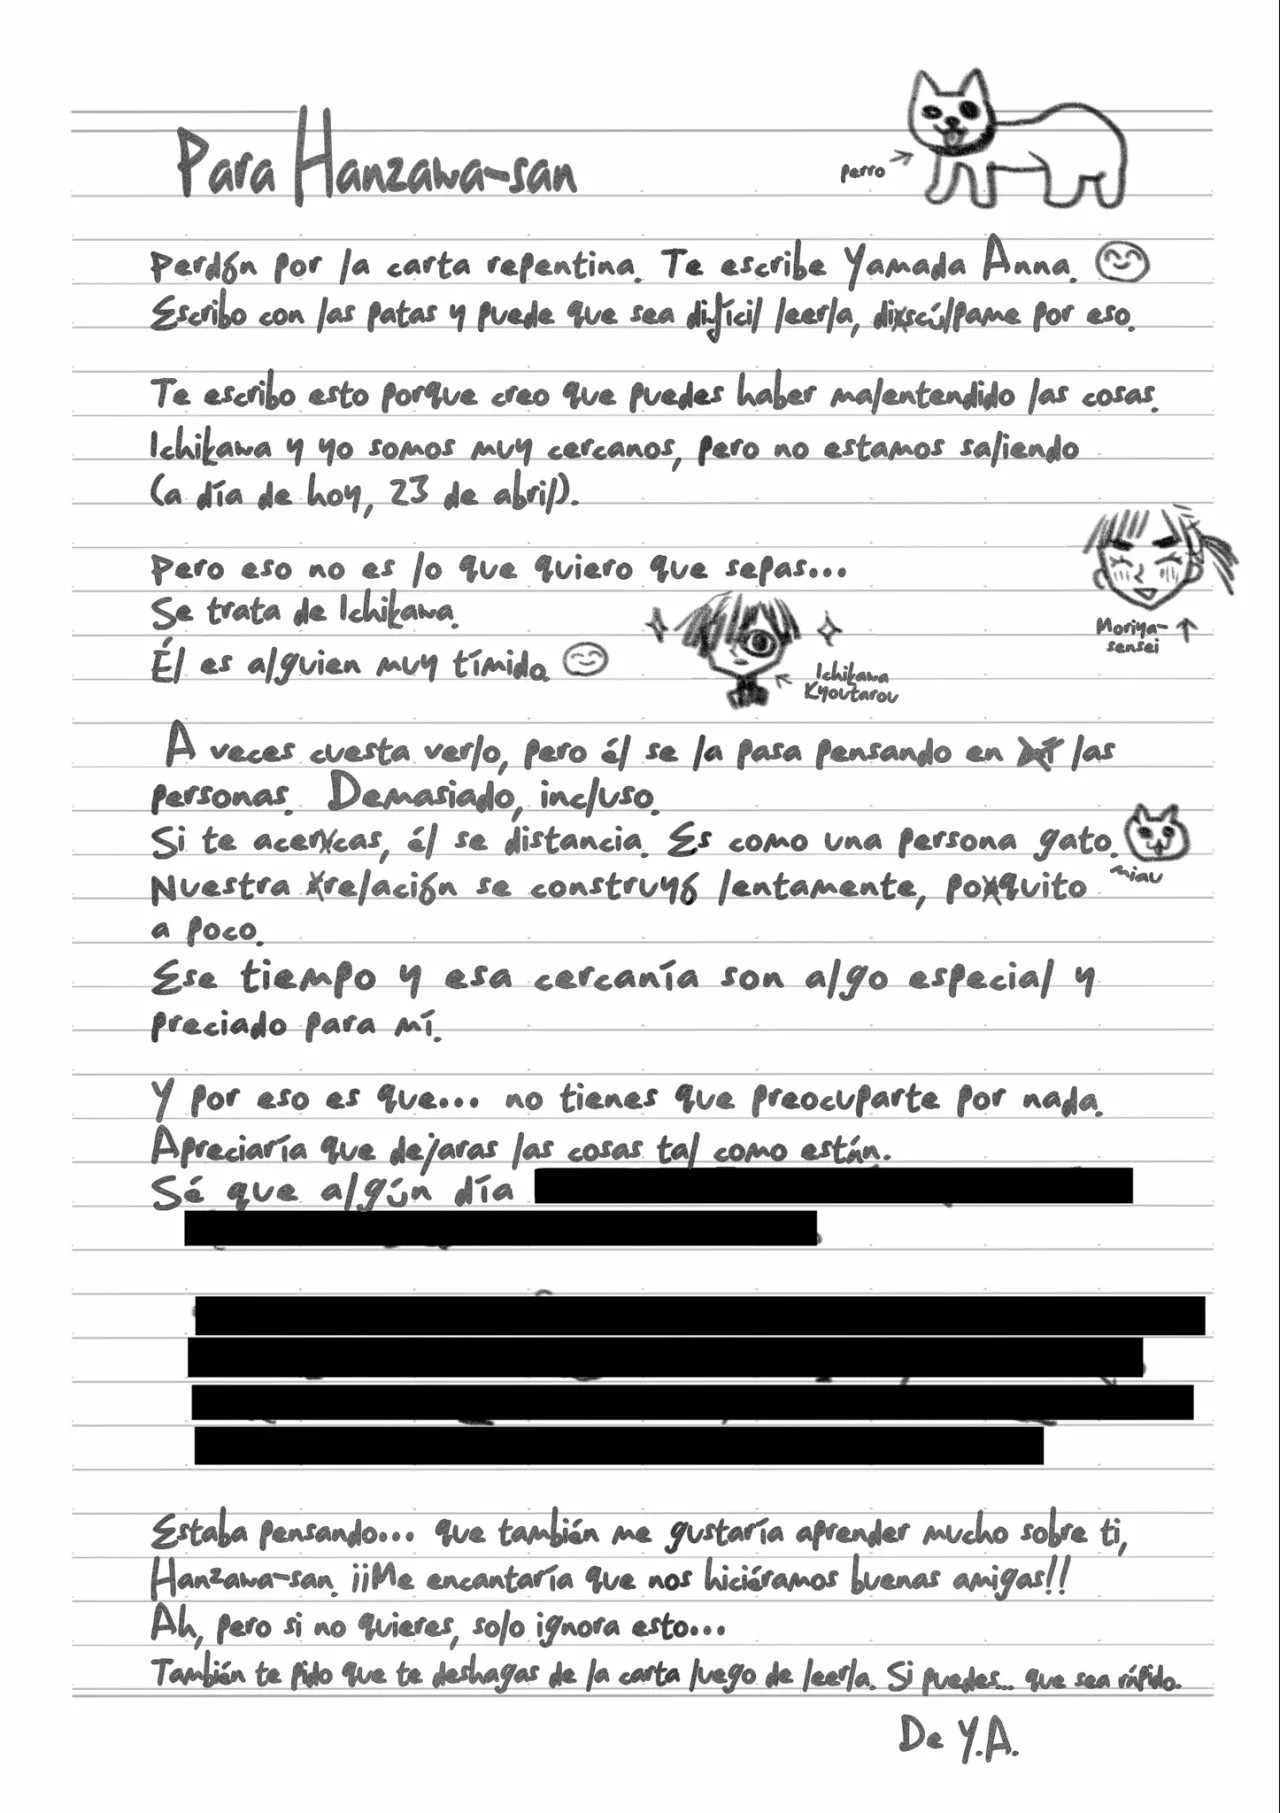 Para Hanzawa-san
perro
Perdón por la carta repentina. Te escribe Yamada Anna.
Escribo con las patas y puede que sea difícil leerla, discúlpame por eso.
Te escribo esto porque creo que puedes haber malentendido las cosas.
Ichikawa y yo somos muy cercanos, pero no estamos saliendo
(a día de hoy, 23 de abril).
Pero eso no es lo que quiero que sepas...
Se trata de Ichikawa.
Él es alguien muy tímido.
Ichikawa
Kyoutarou
Moriya-
sensei
A veces cuesta verlo, pero él se la pasa pensando en las
personas. Demasiado, incluso.
Si te acercas, él se distancia. Es como una persona gato.
miau
Nuestra relación se construyó lentamente, poquito
a poco.
Ese tiempo y esa cercanía son algo especial y
preciado para mí.
Y por eso es que... no tienes que preocuparte por nada.
Apreciaría que dejaras las cosas tal como están.
Sé que algún día
Estaba pensando... que también me gustaría aprender mucho sobre ti,
Hanzawa-san. ¡¡Me encantaría que nos hiciéramos buenas amigas!!
Ah, pero si no quieres, solo ignora esto...
También te pido que te deshagas de la carta luego de leerla. Si puedes... que sea rápido.
De Y.A.